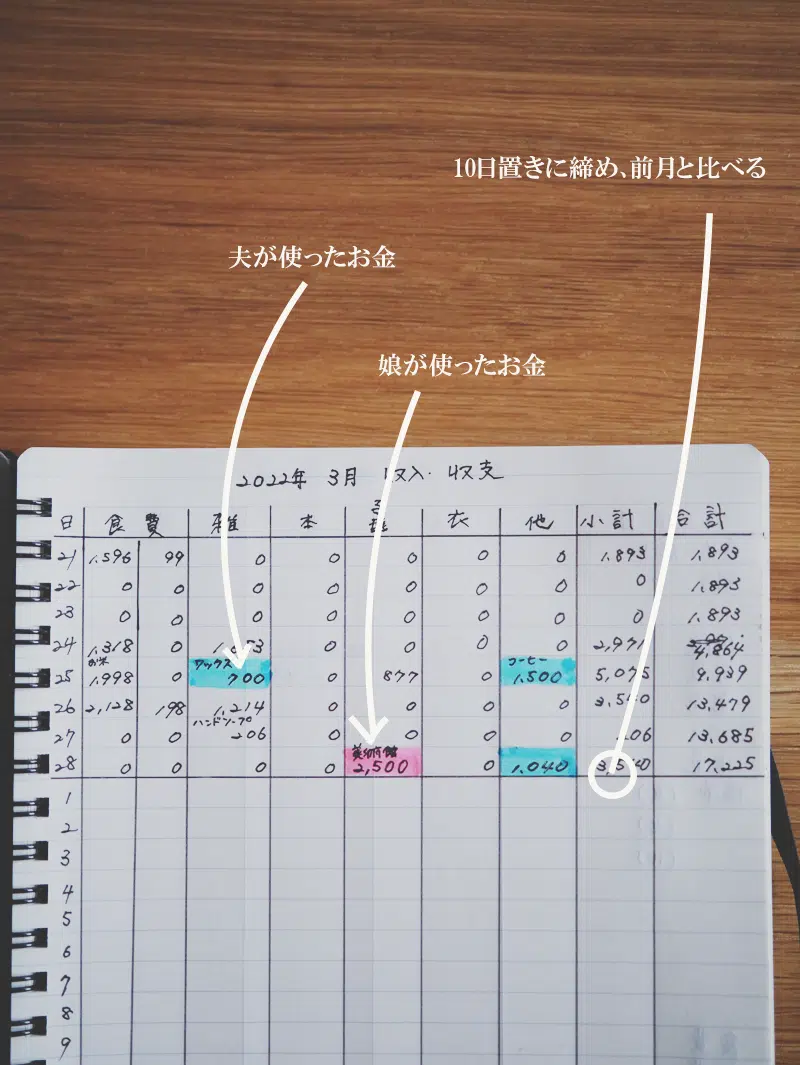 10日置きに締め、前月と比べる
夫が使ったお金
娘が使ったお金
2022年 3月 収入・収支
日 食費 雑 本 衣 他 小計 合計
21 1,596 99 0 0 0 0 0 1,893 1,893
22 0 0 0 0 0 0 0 0 1,893
23 0 0 0 0 0 0 0 0 1,893
24 1,318 0 0 0 0 0 2,971 4,864
お米 ワックス コーヒー
25 1,998 0 700 0 877 0 1,500 5,075 9,939
26 2,128 198 1,214 0 0 0 0 3,540 13,479
ハンドソープ
27 0 0 206 0 0 0 0 206 13,685
美術館
28 0 0 0 0 2,500 0 1,040 3,540 17,225
1
2
3
4
5
6
7
8
9